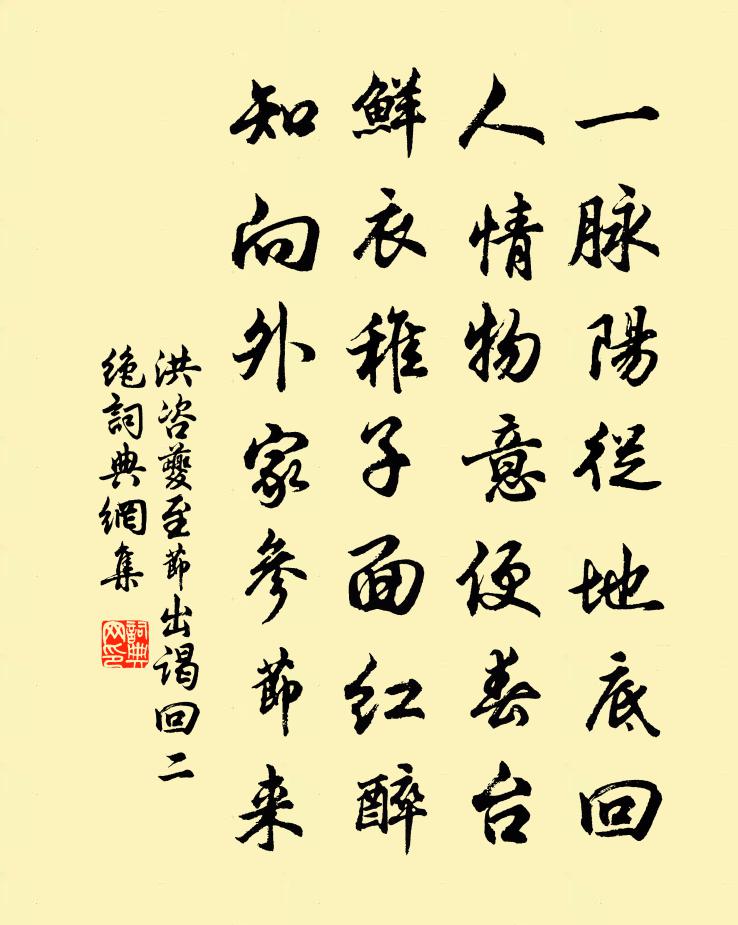 一脉陽從地底回
人情物意便春台
鮮衣稚子面红醉
知向外家參節来
洪咨夔至節出謁回二
絶詞典網集
詞典
网印